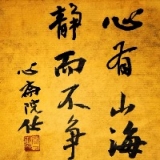 心有山海
静而不争
心斋院作